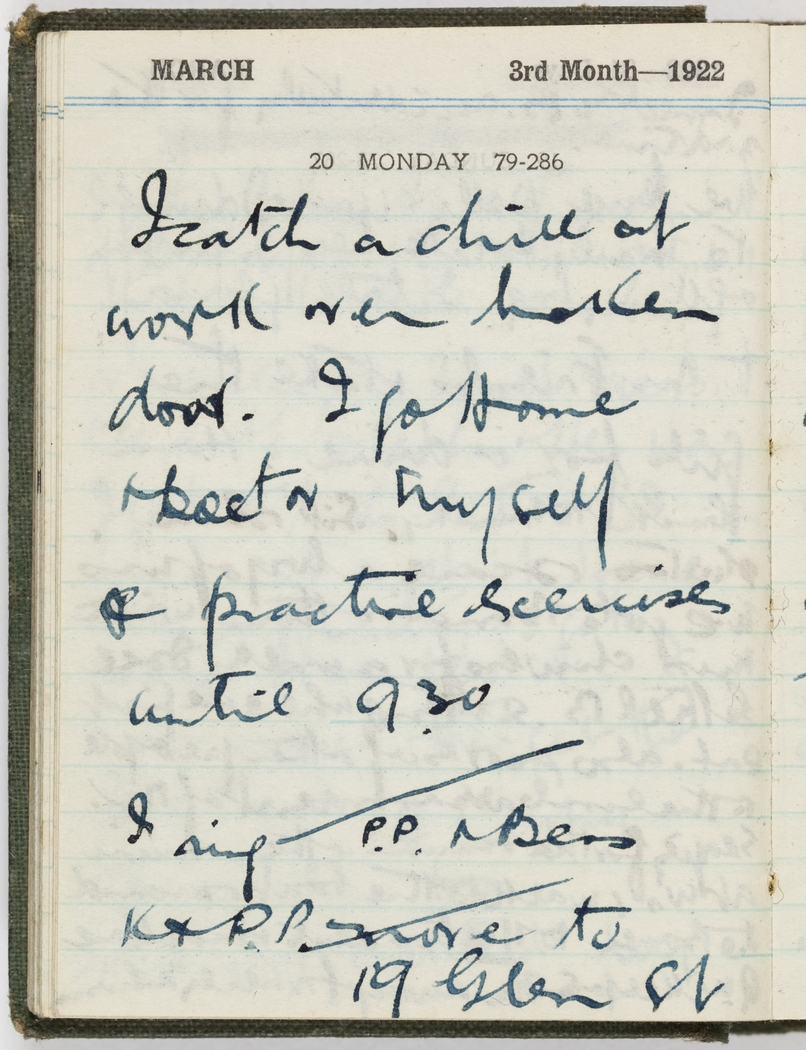 MARCH 3rd Month—1922
20 MONDAY 79-286
I catch a chill at
work over broken
door. I go Home
& Doctor myself
& practise exercises
until 9.30
I ring P.P. & Bess
K & P.P. move to
19 Glen St